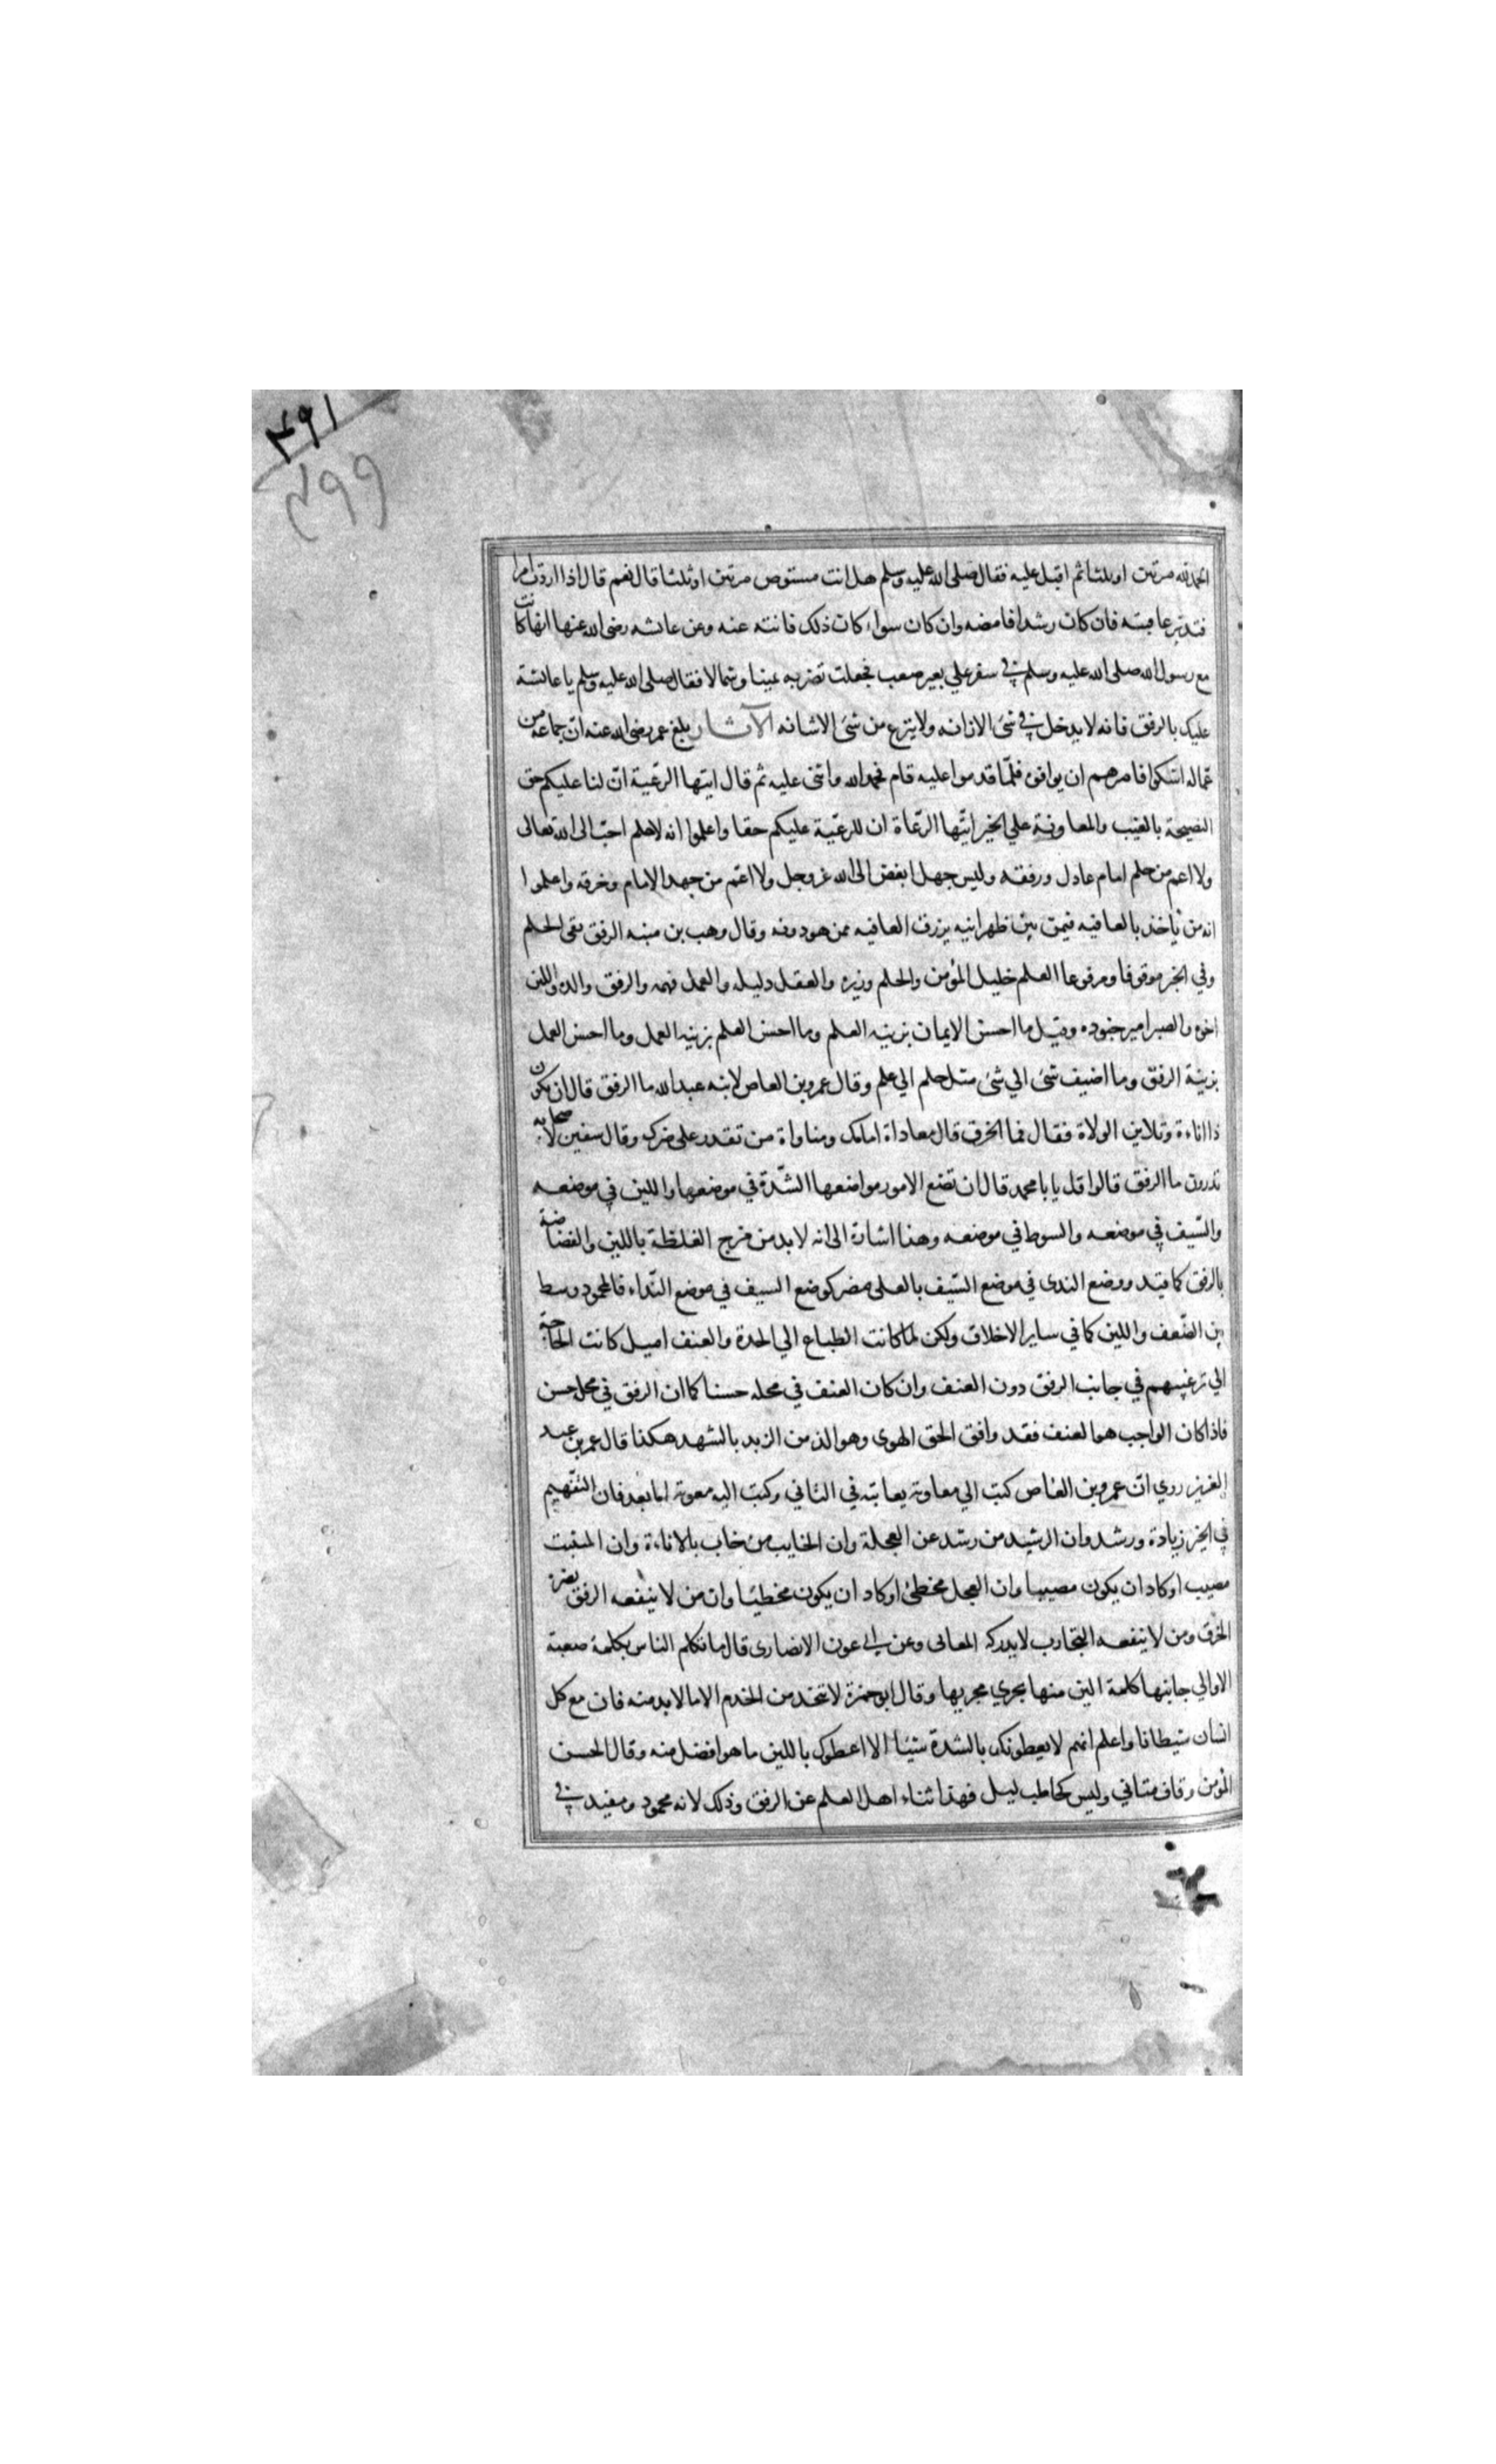 ۴۹۱
۴۹۹
الحمد لله مرتين او ثلثا ثم اقبل عليه فقال صلى الله عليه وسلم هل انت مستوص مرتين او ثلثا قال نعم قال اذا اردت امرا
فتدبر عاقبته فان كان رشدا فامضه وان كان سواء كان ذلك فانته عنه وعن عائشه رضى الله عنها انها كانت
مع رسول الله صلى الله عليه وسلم في سفر علي بعير صعب فجعلت تضربه يمينا وشمالا فقال صلى الله عليه وسلم يا عائشة
عليك بالرفق فانه لا يدخل في شئ الا زانه ولا ينزع من شئ الا شانه الآثار بلغ عمر رضى الله عنه ان جماعة من
عماله اشتكوا فامرهم ان يوافوه فلمّا قدموا عليه قام فحمد الله واثنى عليه ثم قال ايتها الرعّية انّ لنا عليكم حق
النصيحة بالغيب والمعاونة علي الخير ايّتها الرّعاة ان للرعّية عليكم حقا واعلموا انه لا حلم احبّ الى الله تعالى
ولا اعم من حلم امام عادل ورفقه وليس جهل ابغض الى الله عز وجل ولا اعّم من جهل الامام وخرقه واعلموا
انه من ياخذ بالعافيه فيمن بين ظهرانيه يرزق العافيه ممن هو دونه وقال وهب بن منبه الرفق بقى الحلم
وفي الخبر موقوفا ومرفوعا العلم خليل المؤمن والحلم وزيره والعقل دليله والعمل فهمه والرفق والده واللين
اخوه والصبر امير جنوده وقيل ما احسن الايمان يزينه العلم وما احسن العلم يزينه العمل وما احسن العمل
يزينة الرفق وما اضيف شئ الي شئ مثل حلم الي علم وقال عمرو بن العاص لابنه عبد الله ما الرفق قال ان يكون
ذا اناءة وتلاين الولاة فقال فما الخرق قال معاداة امامك ومناواة من تقدر على ضرك وقال سفين لاصحابه
تدرون ما الرفق قالوا قل يا با محمد قال ان تضع الامور مواضعها الشّدة في موضعها واللين في موضعه
والسّيف في موضعه والسوط في موضعه وهذا اشارة الى انه لا بد من مزج الغلظة باللين والفضاضة
بالرفق كما قيل ووضع الندى في موضع السّيف بالعلى مضر كوضع السيف في موضع النّداء فالمحمود وسط
بين الضّعف واللين كما في ساير الاخلاق ولكن لما كانت الطباع الي الحدة والعنف اميل كانت الحاجة
الي ترغيبهم في جانب الرفق دون العنف وان كان العنف في محله حسنا كما ان الرفق في محل حسن
فاذا كان الواجب هو العنف فقد وافق الحق الهوى وهو الذ من الزبد بالشهد هكذا قال عمر بن عبد
العزيز روي انّ عمرو بن العاص كتب الي معاوية يعاتبه في التاني وكتب اليه معوية اما بعد فان التفهيم
في الخير زيادة ورشد وان الرشيد من رشد عن العجلة وان الخايب من خاب بالاناءة وان المتثبت
مصيب او كاد ان يكون مصيبا وان العجل مخطئ او كاد ان يكون مخطيئا وان من لا ينفعه الرفق يضره
الخرق ومن لا ينفعه التجارب لا يدركه المعالى وعن ابي عون الانصارى قال ما تكلم الناس بكلمة صعبة
الا والي جانبها كلمة الين منها يجري مجريها وقال ابو حمزة لا تتخذ من الخدم الا ما لا بد منه فان مع كل
انسان شيطانا واعلم انهم لا يعطونك بالشدة شيئا الا اعطوك باللين ما هو افضل منه وقال الحسن
المؤمن وقاف متاني وليس كحاطب ليل فهذا ثناء اهل العلم عن الرفق وذلك لانه محمود ومفيد في